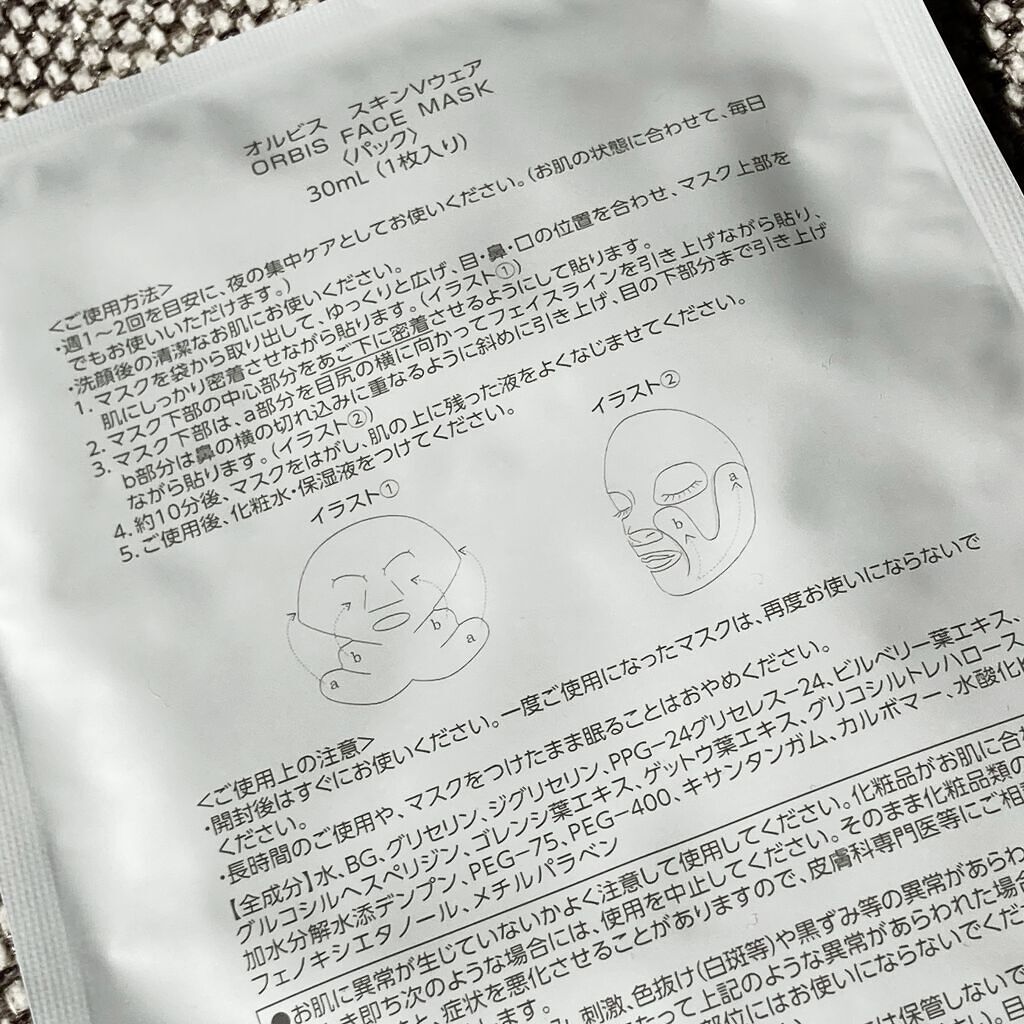 オルビス　スキンVウェア
ORBIS FACE MASK
〈パック〉
30mL（1枚入り）
＜ご使用方法＞
・週1〜2回を目安に、夜の集中ケアとしてお使いください。（お肌の状態に合わせて、毎日
でもお使いいただけます。）
・洗顔後の清潔なお肌にお使いください。
1. マスクを袋から取り出して、ゆっくりと広げ、目・鼻・口の位置を合わせ、マスク上部を
肌にしっかり密着させながら貼ります。（イラスト①）
2. マスク下部の中心部分をあご下に密着させるようにして貼ります。
3. マスク下部は、a部分を目尻の横に向かってフェイスラインを引き上げながら貼り、
b部分は鼻の横の切れ込みに重なるように斜めに引き上げ、目の下部分まで引き上げ
ながら貼ります。（イラスト②）
4. 約10分後、マスクをはがし、肌の上に残った液をよくなじませてください。
5. ご使用後、化粧水・保湿液をつけてください。
イラスト①
イラスト②
a
b
b
a
a
b
＜ご使用上の注意＞
・開封後はすぐにお使いください。一度ご使用になったマスクは、再度お使いにならないで
ください。
・長時間のご使用や、マスクをつけたまま眠ることはおやめください。
【全成分】水、BG、グリセリン、ジグリセリン、PPG-24グリセレス-24、ビルベリー葉エキス、
グルコシルヘスペリジン、ゴレンシ葉エキス、ゲットウ葉エキス、グリコシルトレハロース、
加水分解水添デンプン、PEG-75、PEG-400、キサンタンガム、カルボマー、水酸化
フェノキシエタノール、メチルパラベン
●お肌に異常が生じていないかよく注意して使用してください。化粧品がお肌に合
き即ち次のような場合には、使用を中止してください。そのまま化粧品類の
と、症状を悪化させることがありますので、皮膚科専門医等にご相
す。
刺激、色抜け（白斑等）や黒ずみ等の異常があらわ
たって上記のような異常があらわれた場合
部位にはお使いにならないでくだ
には保管しないで